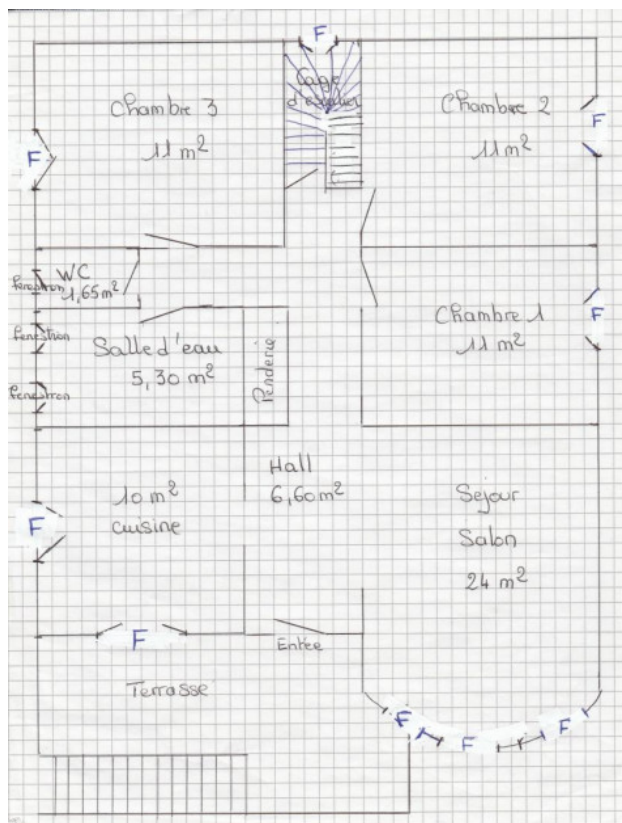 F
Cage
d'escalier
Chambre 3
11 m²
F
Chambre 2
11 m²
F
WC
1,65m²
fenestron
fenestron
fenestron
Salle d'eau
5,30 m²
Penderie
Chambre 1
11 m²
F
Hall
6,60m²
10 m²
cuisine
F
Sejour
Salon
24 m²
F
Entée
Terrasse
F
F
F